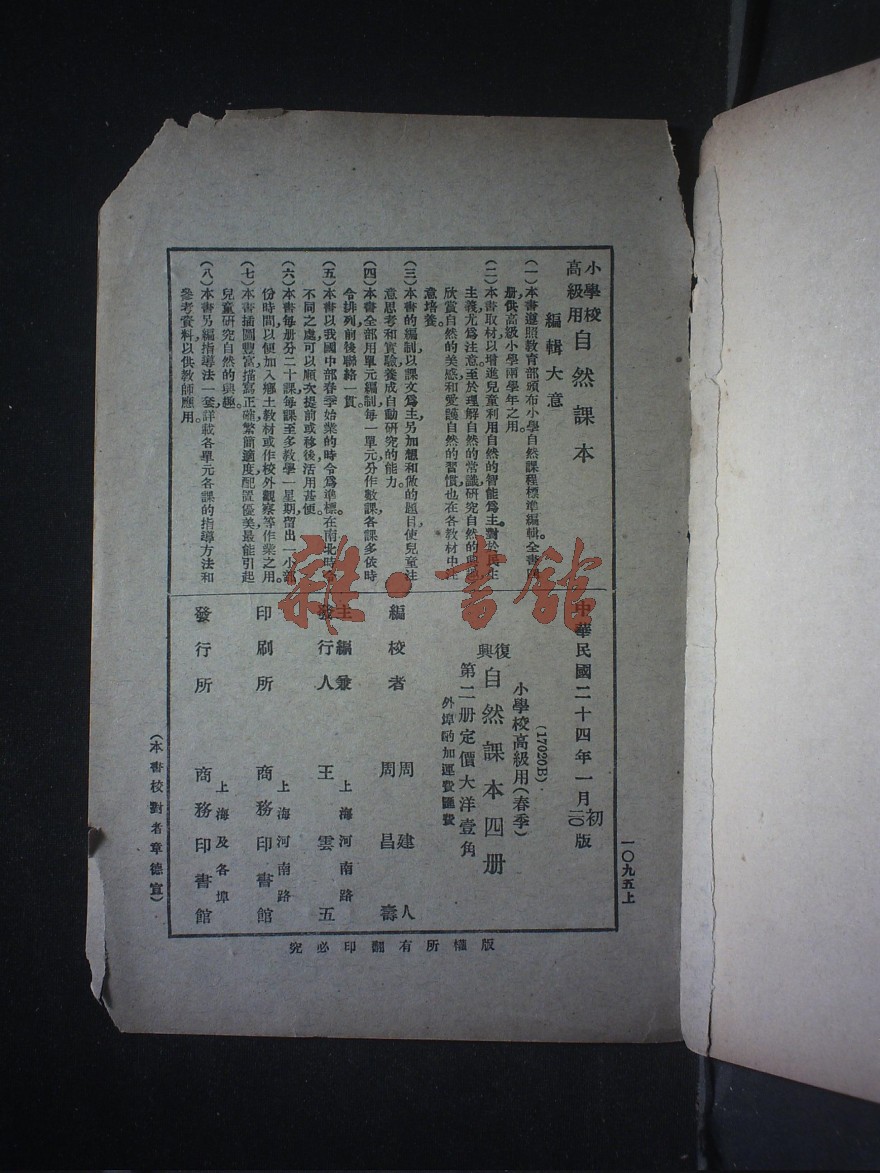 小學校
高級用
自然課本
編輯大意
(一)本書遵照教育部頒布小學自然課程標準編輯。全書四
册,供高級小學兩學年之用。
(二)本書取材以增進兒童利用自然的智能爲主,對於民生
主義尤爲注意。至於理解自然的常識,研究自然的
欣賞自然的美感和愛護自然的習慣,也在各教材中注
意培養。
(三)本書的編制以課文爲主,另加想和做的題目,使兒童注
意思考和實驗,養成自動研究的能力。
(四)本書全部用單元編制,每一單元分作數課,各課多依時
令排列,前後聯絡一貫。
(五)本書以我國中部春季始業的時令爲準標,在南北時令
不同之處,可以順次提前或移後,活用甚便。
(六)本書每册分二十課,每課至多教學一星期,留出一小部
份時間,以便加入鄉土教材或作校外觀察等作業之用。
(七)本書插圖豐富,描寫正確,繁簡適度,配置優美,最能引起
兒童研究自然的興趣。
(八)本書另編指導法一套,詳載各單元各課的指導方法和
參考資料,以供教師應用。
中華民國二十四年一月初版
二〇
(17020B)
小學校高級用(春季)
復興
自然課本四册
第二册定價大洋壹角
外埠酌加運費匯費
編校者
周建人
周昌壽
主編兼
發行人
上海河南路
王雲五
印刷所
上海河南路
商務印書館
發行所
上海及各埠
商務印書館
(本書校對者章德宣)
一〇九五上
版權所有翻印必究
雜·書館